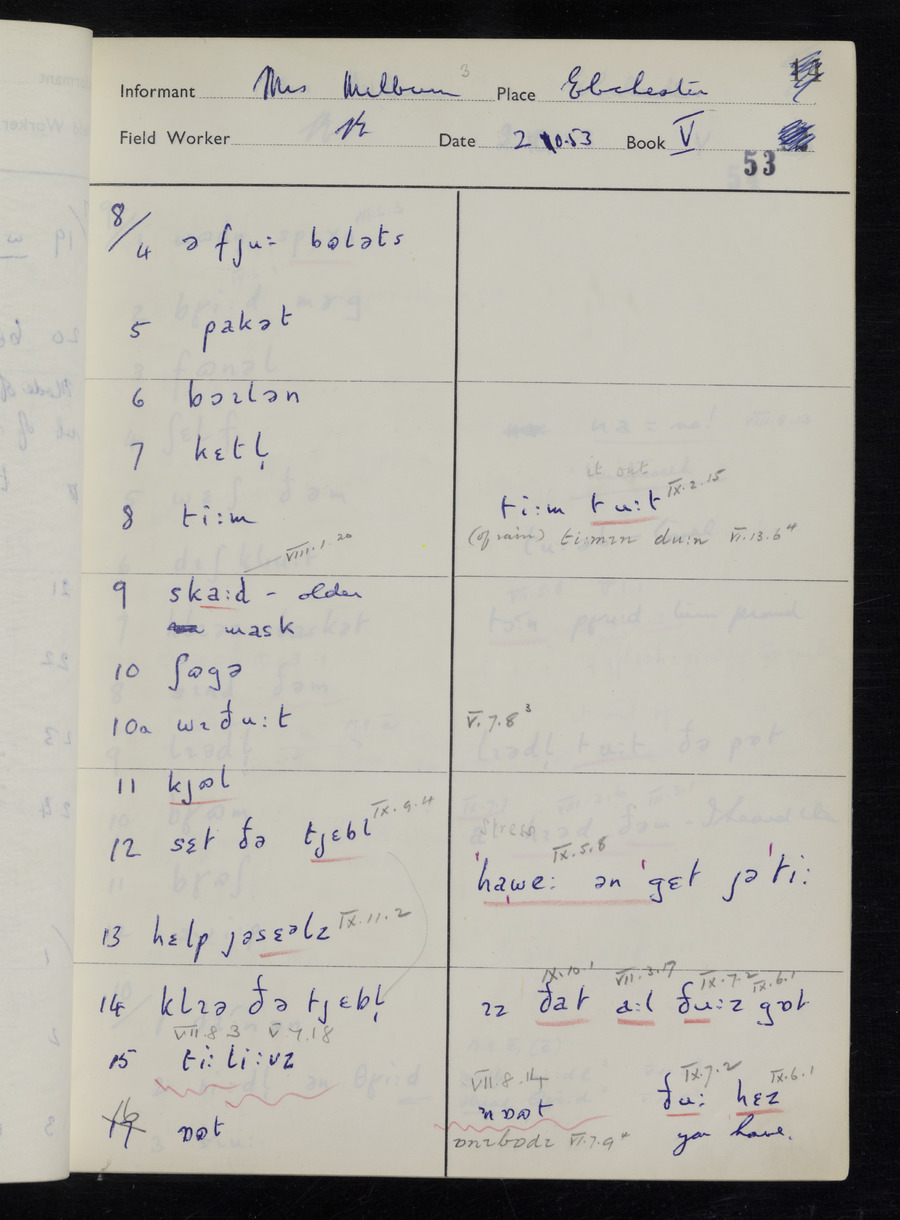 Informant Mrs Milburn 3 Place Ebchester
Field Worker Date 2 10.53 Book V
53
8/4 ə fjuː bələts
5 pakət
6 bɔɪlən
7 kɛtl̩
8 tiːm
tiːm tuːt IX.2.15
it out
(of rain) tiːmɪn duːn VI.13.6
VIII.1.20
9 skaːd – older
mask
10 ʃəgə
10a wɪðuːt V.7.8³
11 kjəl
12 sɛt ðə tjɛbl IX.9.4
stress
IX.5.8
ˈhaweː ən ˈgɛt jəˈtiː
13 hɛlp jəsɛəlz IX.11.2
14 klɪə ðə tjɛbl̩
IX.10.1 VII.3.17 IX.7.2 IX.6.1
ɪz ðat aːl ðuːz gɒt
VII.8.3 V.4.18
15 tiː liːvz
VII.8.14 IX.7.2 IX.6.1
nɒət ðuː hɛz
you have.
ɒnɪbɒdɪ VI.7.9